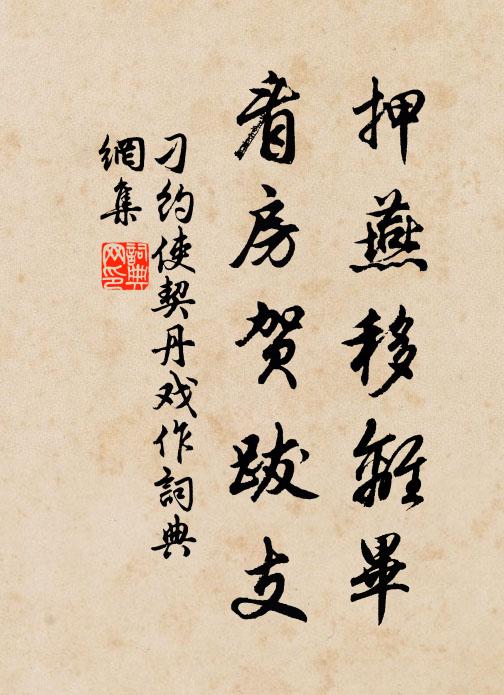 押燕移離畢
看房贺跋支
刁约使契丹戏作詞典
網集
詞典
网印